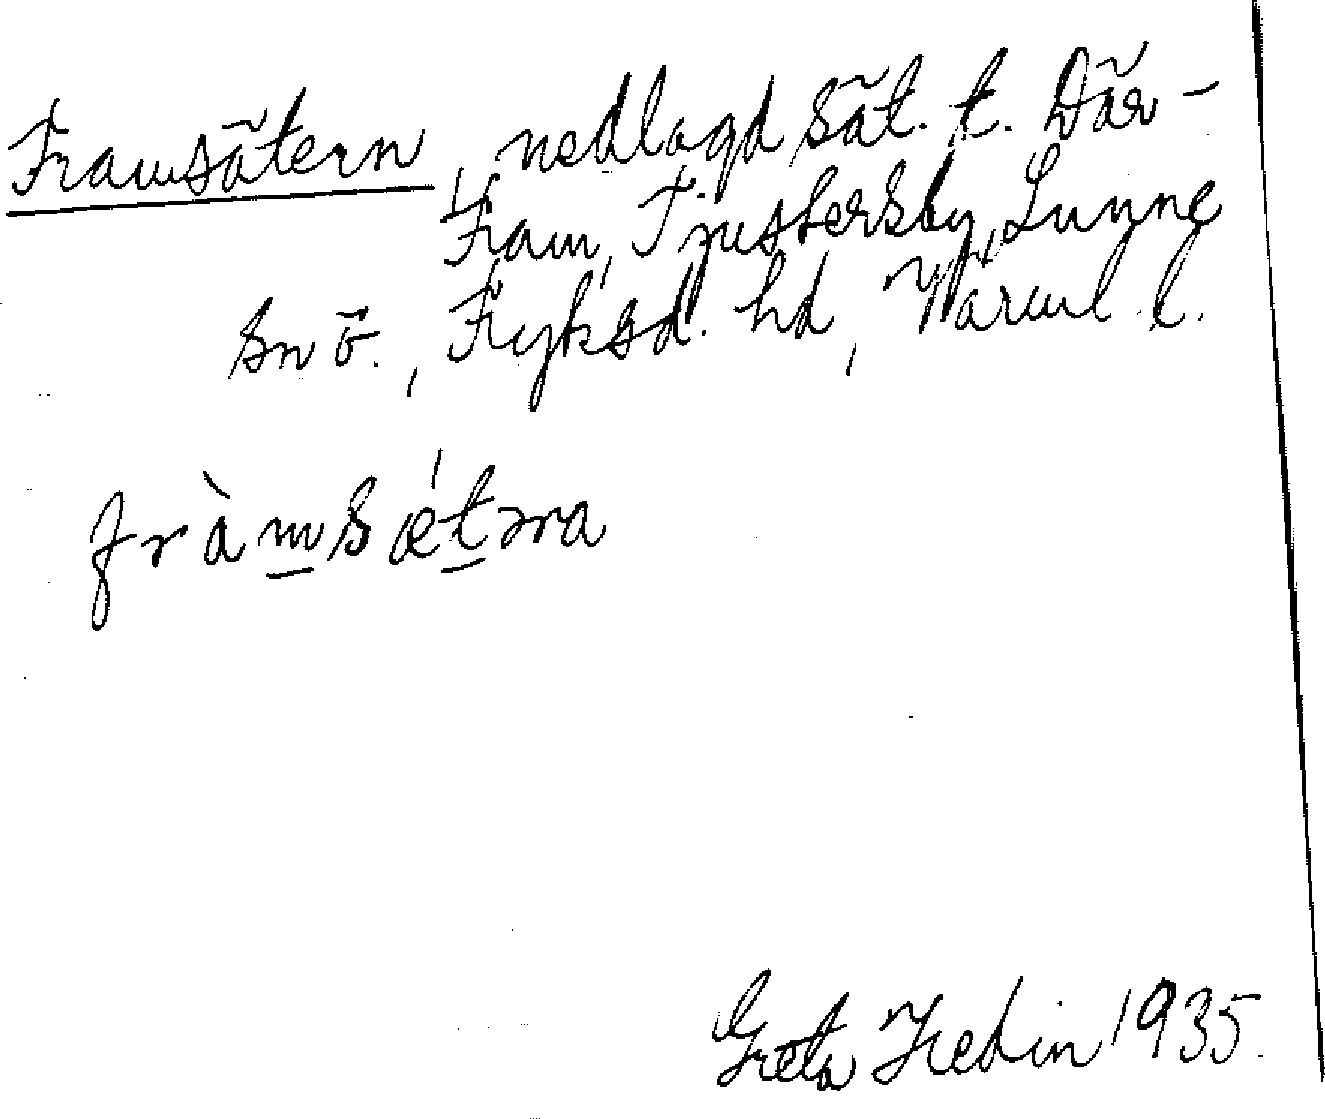 Framsätern, nedlagd sät. t. Där-
Fram, Tjustersby, Sunne
sn ö., Fryksd. hd, Värml. l.
fràmsǽtəra
Greta Hedin 1935.